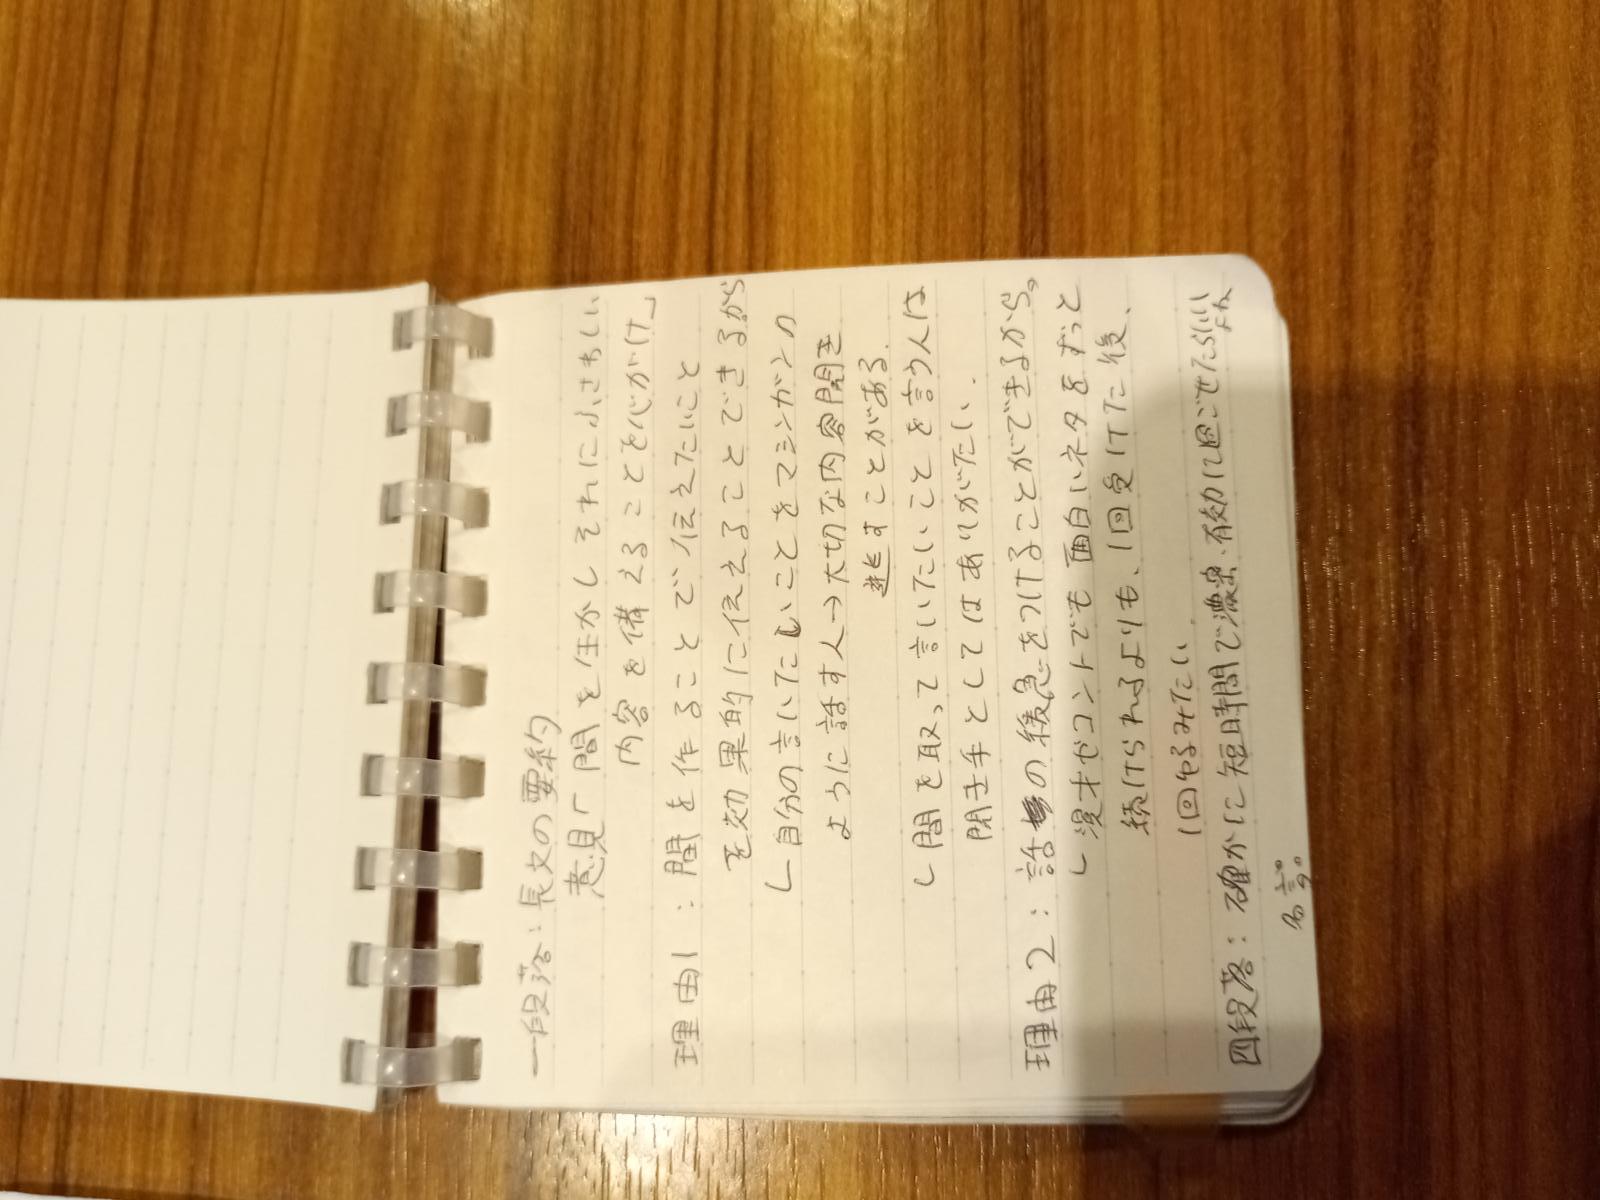 一段落：長文の要約
意見「間を生かしそれにふさわしい
内容を備えることを心がけ」
理由1：間を作ることで伝えたいこと
を効果的に伝えることできるから
自分の言いたしいことをマシンガンの
ように話す人→大切な内容聞き
逃すことがある.
間を取って言いたいことを言う人は
聞き手としてはありがたい.
理由2：話の緩急をつけることができるから。
漫才やコントでも面白いネタをずっと
続けられるよりも、1回受けた後、
1回ゆるみたい
四段落：確かに短時間で濃密、有効に過ごせたらいい
よね
名言。